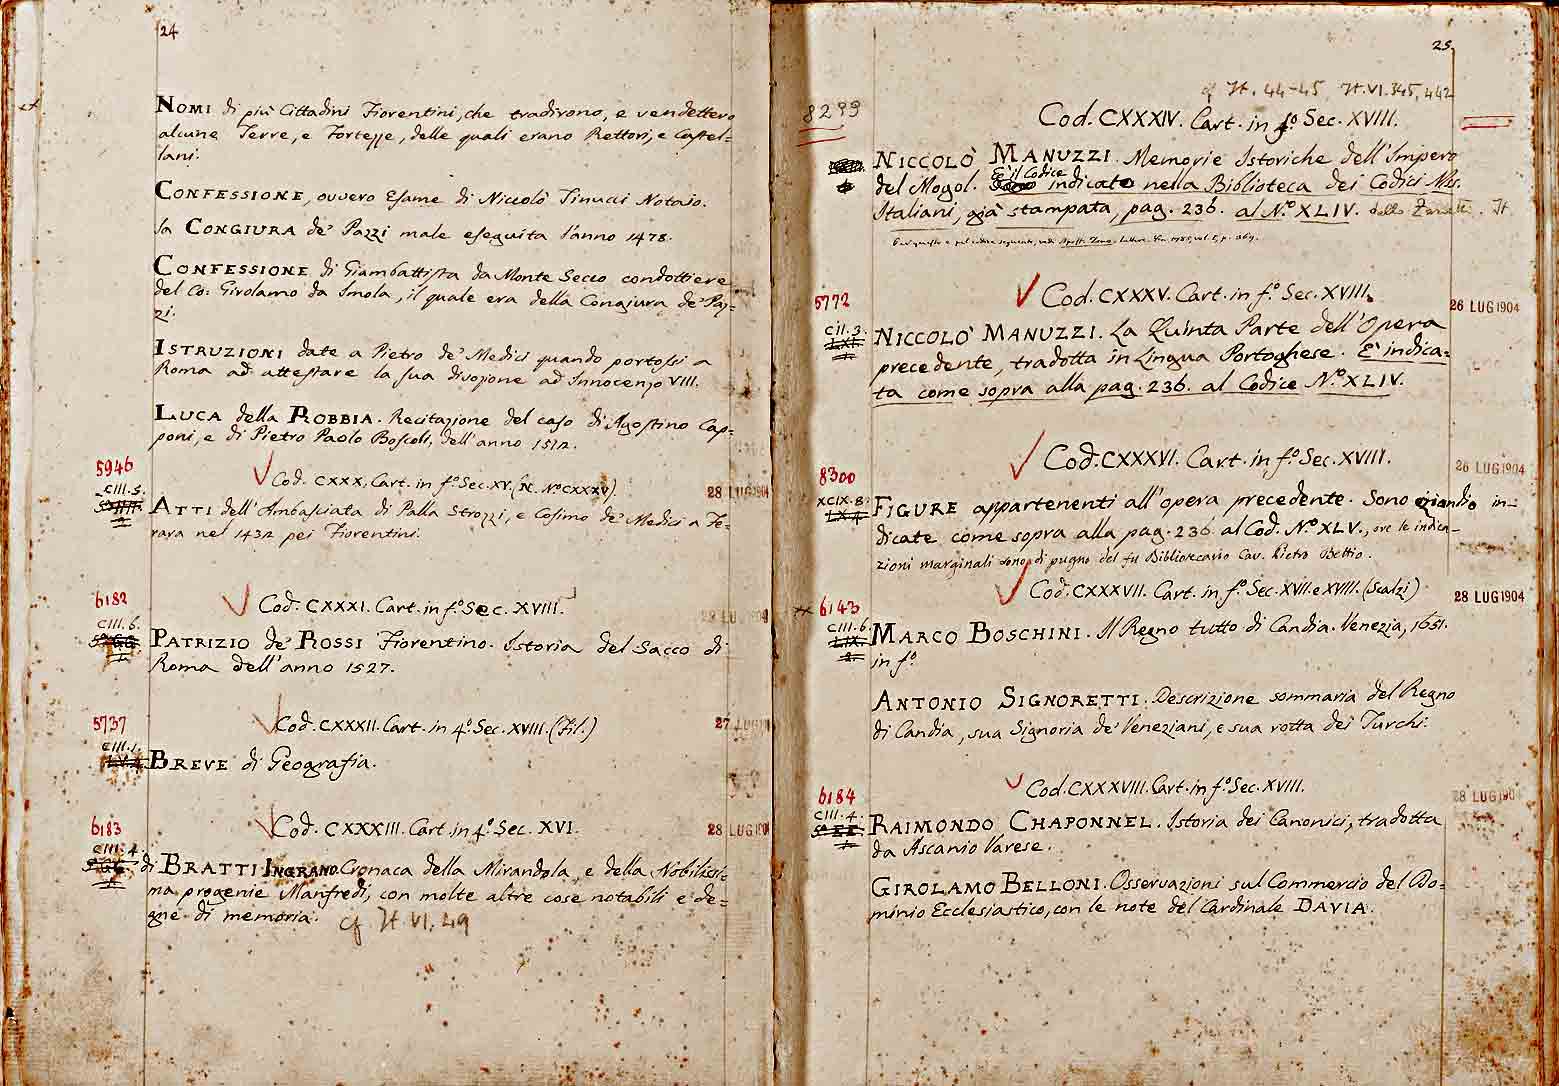 24
NOMI di più Cittadini Fiorentini, che tradirono, e vendettero
alcune Terre, e Fortezze, delle quali erano Rettori, e Castel-
lani.
CONFESSIONE, ovvero Esame di Niccolò Tinucci Notaio.
la CONGIURA de' Pazzi male eseguita l'anno 1478.
CONFESSIONE di Giambattista da Monte Secco condottiere
del Co: Girolamo da Imola, il quale era della Congiura de' Paz-
zi.
ISTRUZIONI date a Pietro de' Medici quando portossi a
Roma ad attestare la sua divozione ad Innocenzo VIII.
LUCA della ROBBIA. Recitazione del caso di Agostino Cap-
poni, e di Pietro Paolo Boscoli, dell'anno 1512.
5946
Cod. CXXX. Cart. in f.º Sec. XV. (N. Nº CXXXV).
28 LUG 1904
CIII. 5.
ATTI dell'Ambasciata di Palla Strozzi, e Cosimo de' Medici a Fe-
rara nel 1432 pei Fiorentini.
6182
Cod. CXXXI. Cart. in f.º Sec. XVIII.
28 LUG 1904
CIII. 6.
PATRIZIO de' ROSSI Fiorentino. Istoria del Sacco di
Roma dell'anno 1527.
5737
Cod. CXXXII. Cart. in 4º. Sec. XVIII. (Fil.)
27 LUG
CIII. 1.
BREVE di Geografia.
6183
Cod. CXXXIII. Cart. in 4º. Sec. XVI.
28 LUG 190
CIII. 4.
di BRATTI INGRANO. Cronaca della Mirandola, e della Nobilissi-
ma progenie Manfredi, con molte altre cose notabili e de-
gne di memoria. cf It. VI. 49
25
cf It. 44-45 It. VI. 345, 442
8299
Cod. CXXXIV. Cart. in f.º Sec. XVIII.
NICCOLÒ MANUZZI. Memorie Istoriche dell'Impero
del Mogol. È il Codice indicato nella Biblioteca dei Codici Mss.
Italiani, già stampata, pag. 236. al Nº XLIV. dello Zanetti. It
5772
Cod. CXXXV. Cart. in f.º Sec. XVIII.
26 LUG 1904
CII. 3.
NICCOLÒ MANUZZI. La Quinta Parte dell'Opera
precedente, tradotta in Lingua Portoghese. È indica-
ta come sopra alla pag. 236. al Codice Nº XLIV.
8300
Cod. CXXXVI. Cart. in f.º Sec. XVIII.
26 LUG 1904
XCIX. 8.
FIGURE appartenenti all'opera precedente. Sono eziandio in-
dicate come sopra alla pag. 236. al Cod. Nº XLV., ove le indica-
zioni marginali sono di pugno del fu Bibliotecario Cav. Pietro Bettio.
6143
Cod. CXXXVII. Cart. in f.º Sec. XVII. e XVIII. (Scalzi)
28 LUG 1904
CIII. 6.
MARCO BOSCHINI. Il Regno tutto di Candia. Venezia, 1651.
in f.º
ANTONIO SIGNORETTI. Descrizione sommaria del Regno
di Candia, sua Signoria de' Veneziani, e sua rotta dei Turchi.
6184
Cod. CXXXVIII. Cart. in f.º Sec. XVIII.
28 LUG 190
CIII. 4.
RAIMONDO CHAPONNEL. Istoria dei Canonici, tradotta
da Ascanio Varese.
GIROLAMO BELLONI. Osservazioni sul Commercio del Do-
minio Ecclesiastico, con le note del Cardinale DAVIA.